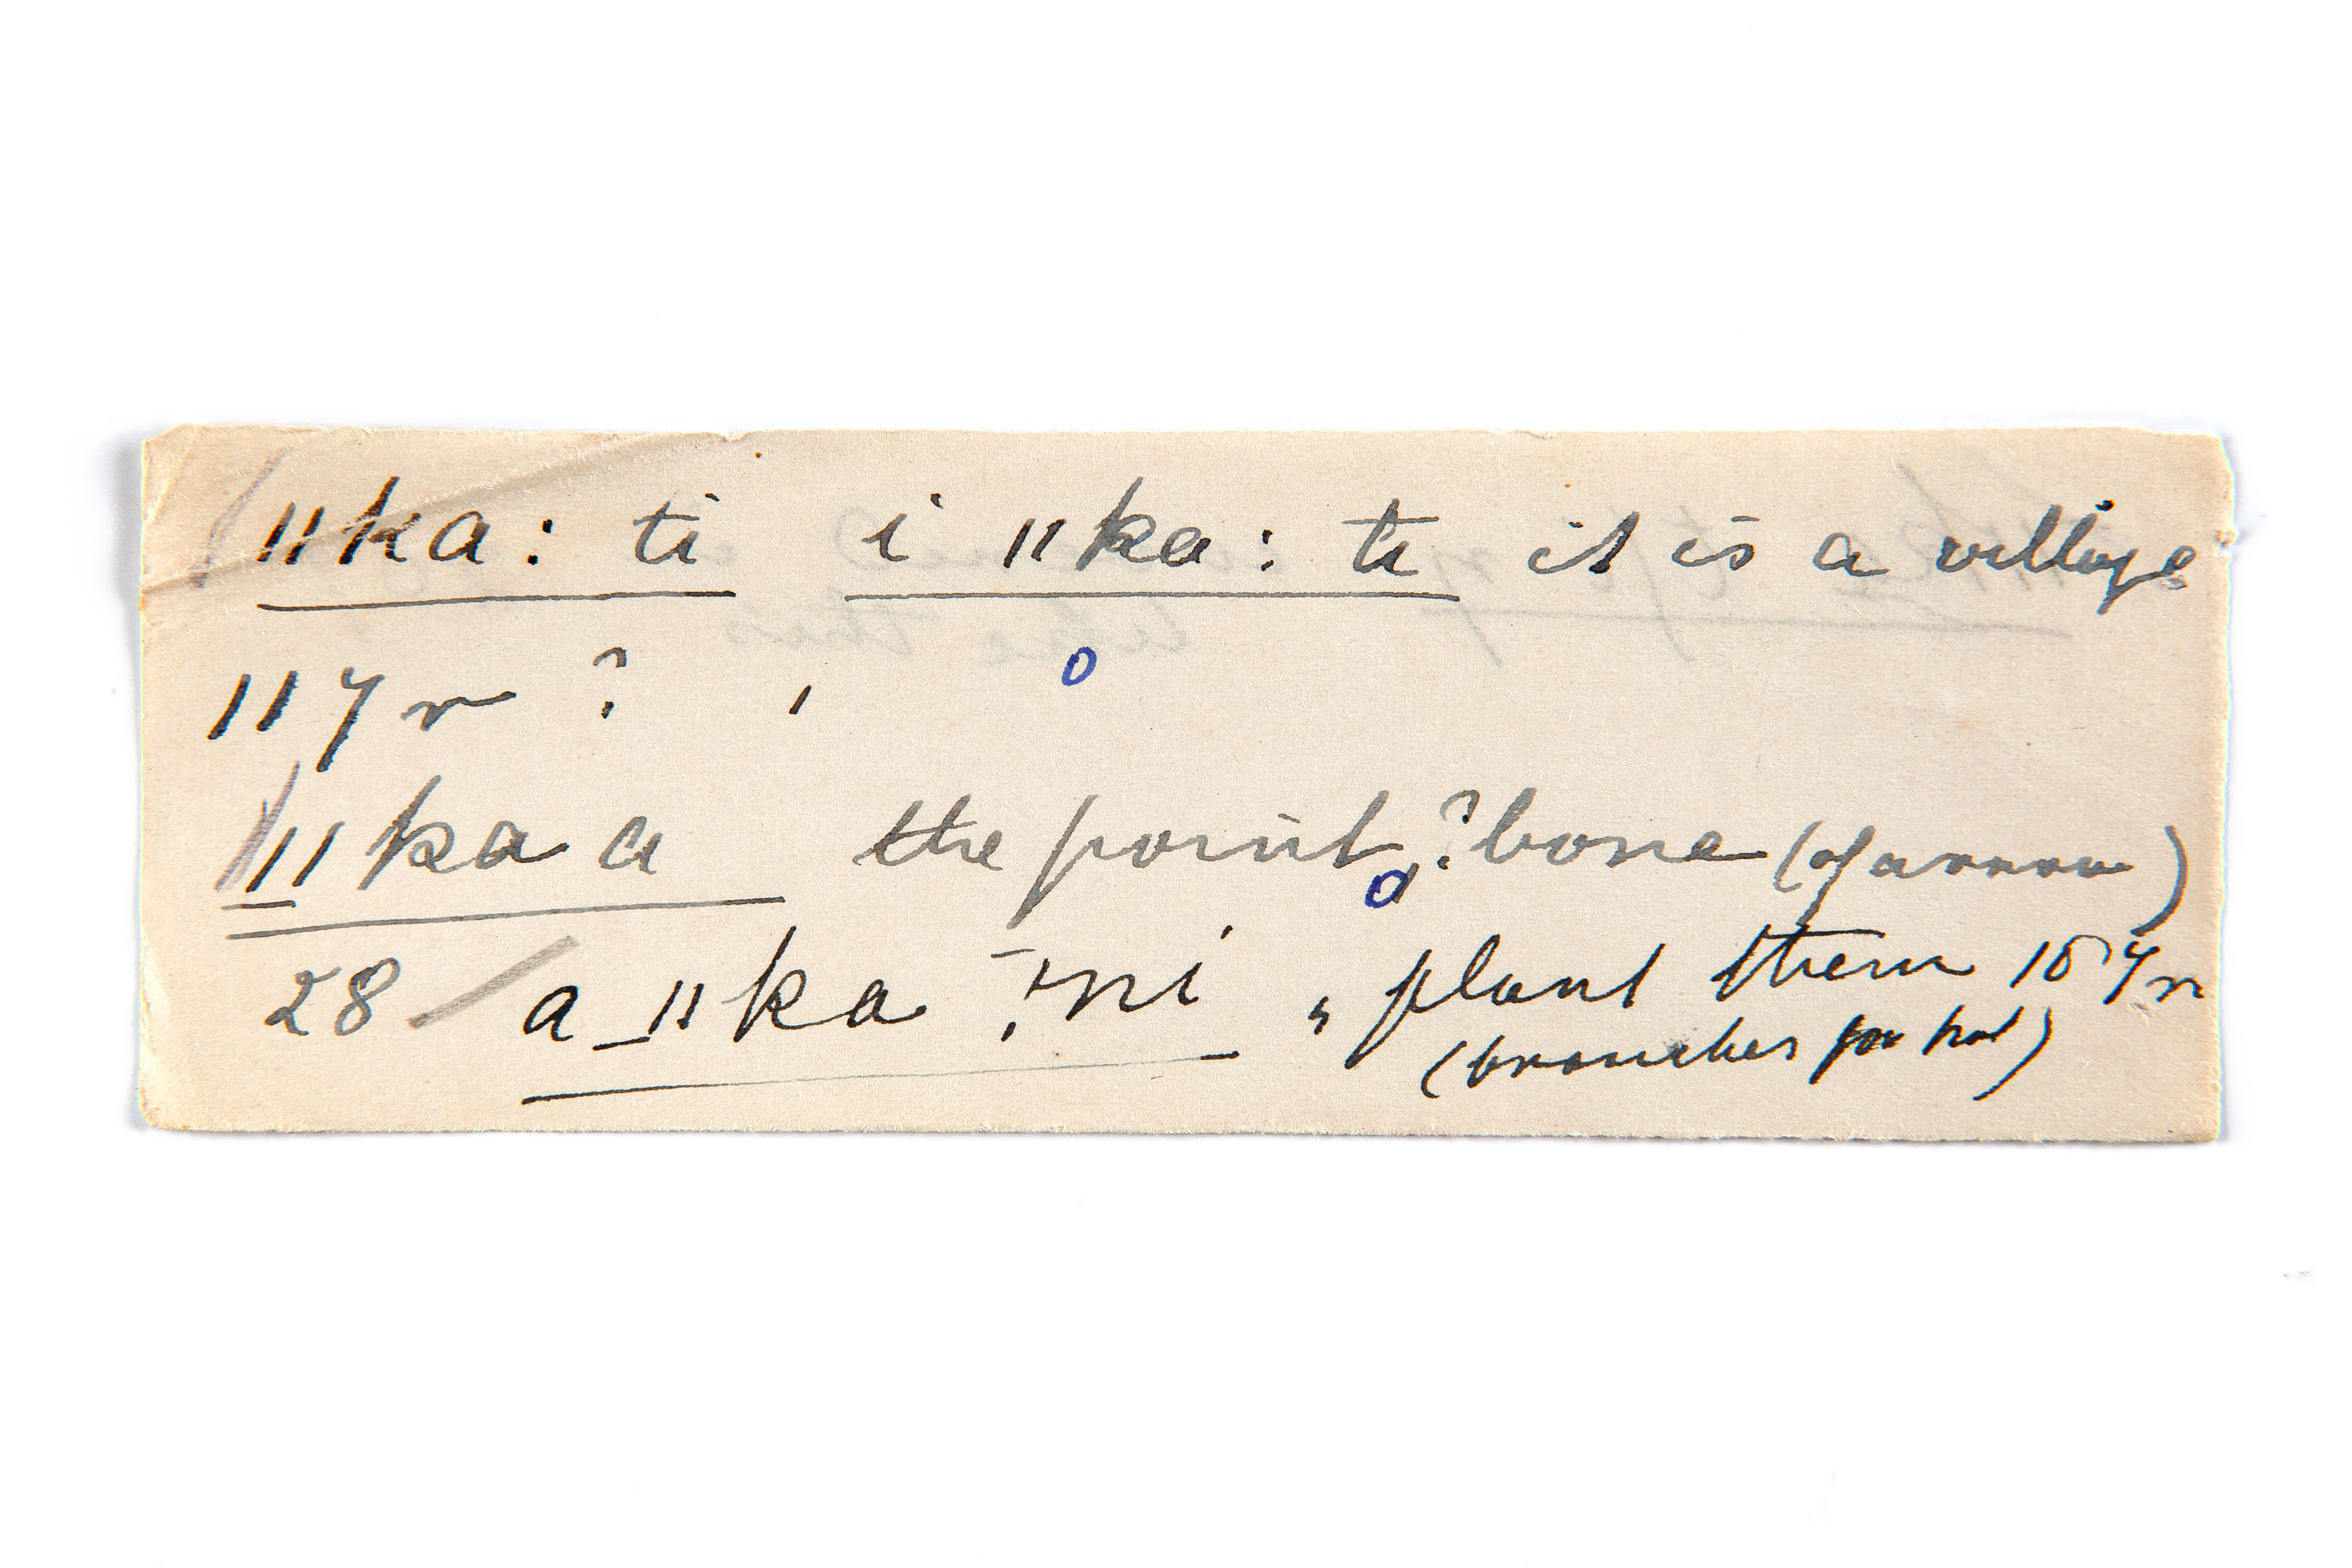 ǁka: ti i ǁka: ti it is a village
117 r ?
ǁka a the point, ? bone (of arrow)
28 a ǁka !ni " plant them 157 r
(branches for hut)